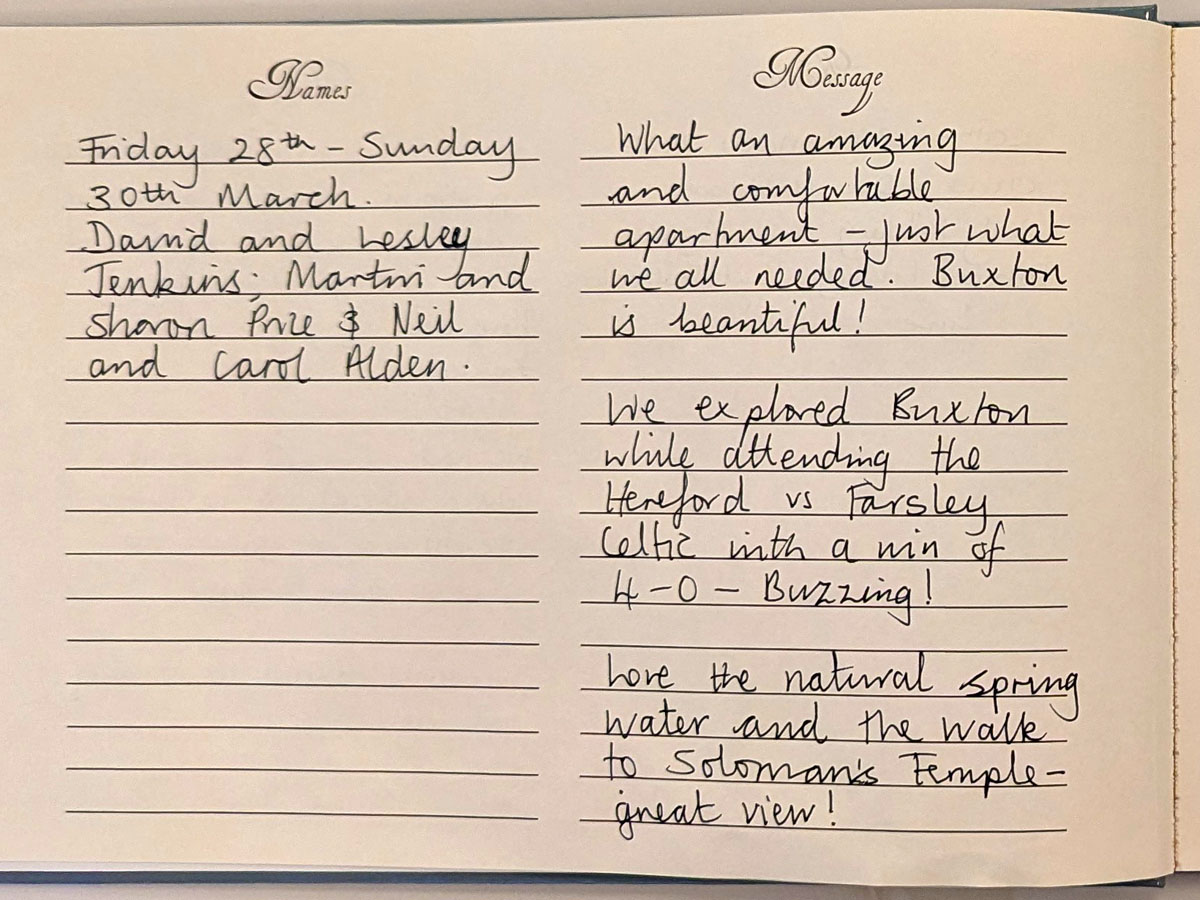 Names
Friday 28th - Sunday
30th March.
David and Lesley
Jenkins; Martin and
Sharon Price & Neil
and Carol Alden.
Message
What an amazing
and comfortable
apartment - just what
we all needed. Buxton
is beautiful!
We explored Buxton
while attending the
Hereford vs Farsley
Celtic with a win of
4-0 - Buzzing!
Love the natural spring
water and the walk
to Soloman's Temple -
great view!